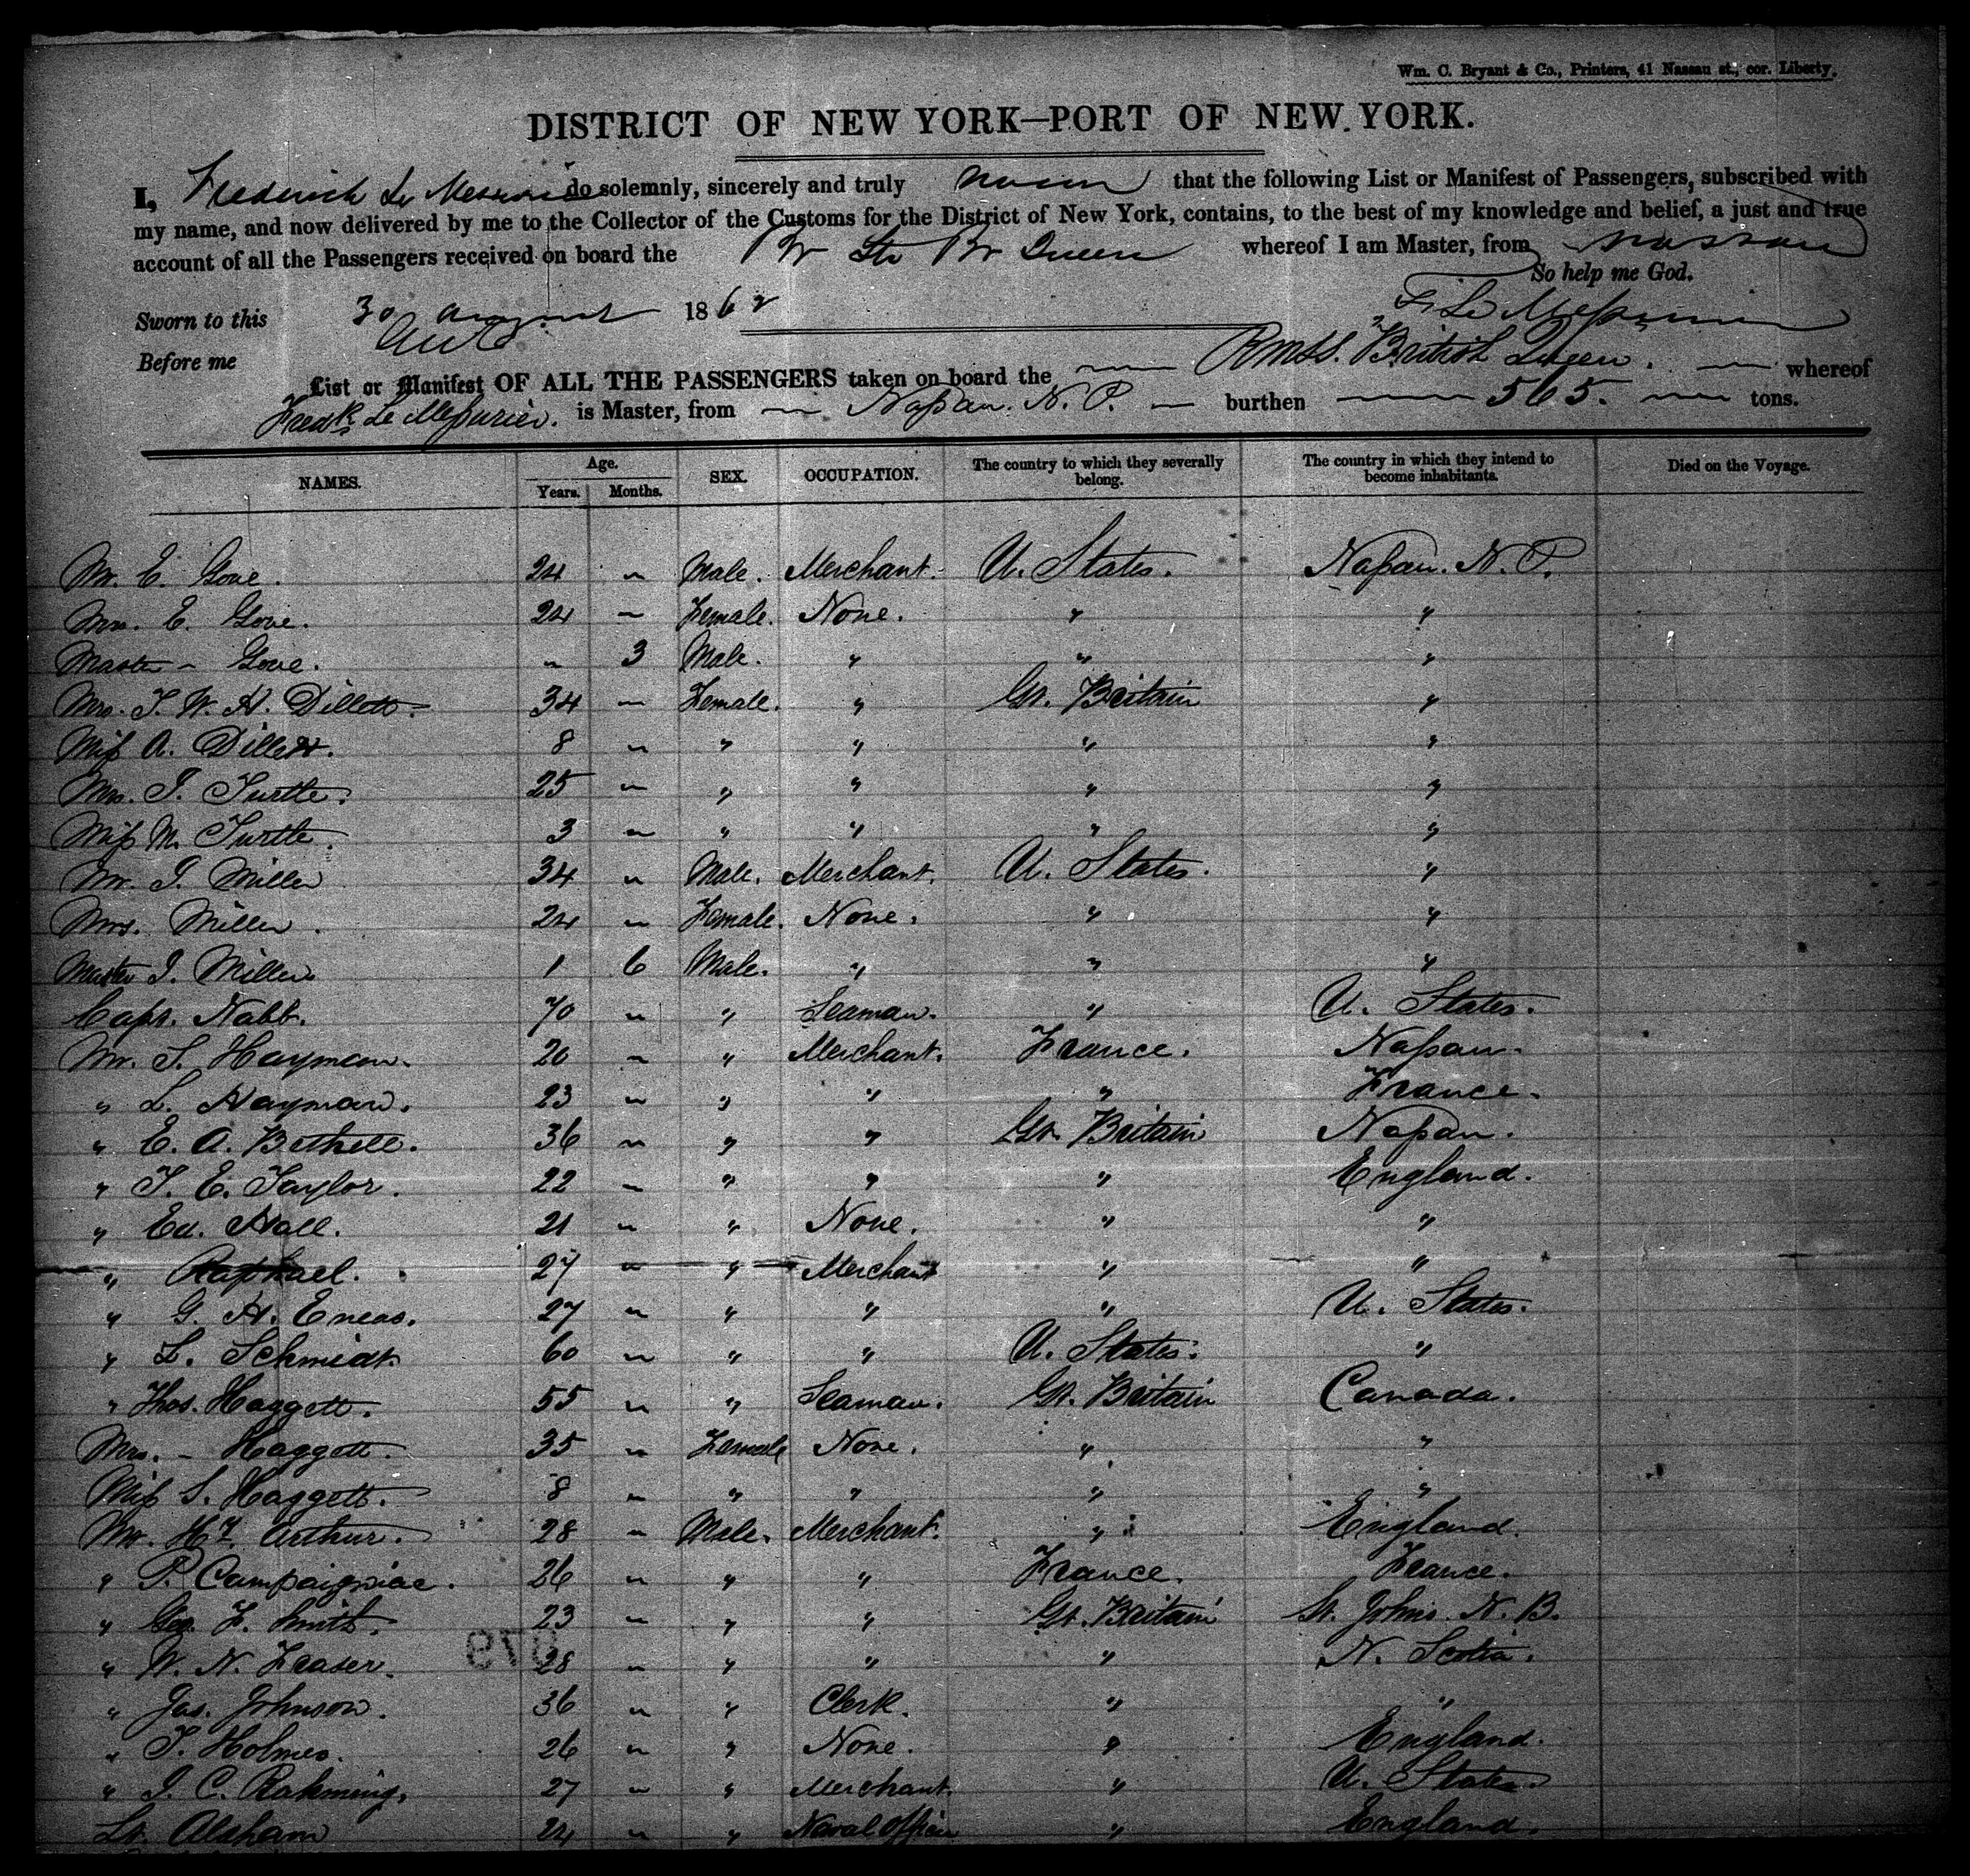 Wm. C. Bryant & Co., Printers, 41 Nassau st., cor. Liberty.
DISTRICT OF NEW YORK—PORT OF NEW YORK.
I, Frederick Le Mesurier do solemnly, sincerely and truly that the following List or Manifest of Passengers, subscribed with
my name, and now delivered by me to the Collector of the Customs for the District of New York, contains, to the best of my knowledge and belief, a just and true
account of all the Passengers received on board the Br Str Br Queen whereof I am Master, from Nassau
So help me God.
Sworn to this 30 August 1862 F. Le Mesurier
Before me
List or Manifest OF ALL THE PASSENGERS taken on board the RMSS. British Queen. whereof
Fredk Le Mesurier. is Master, from Nassau. N. P. burthen 565. tons.
NAMES. Age. Years. Months. SEX. OCCUPATION. The country to which they severally belong. The country in which they intend to become inhabitants. Died on the Voyage.
Mr. E. Gove. 24 " Male. Merchant. U. States. Nassau. N. P.
Mrs. E. Gove. 24 " Female. None. " "
Master - Gove. " 3 Male. " " "
Mrs. T. W. H. Dillett. 34 " Female. " Gt. Britain "
Miss A. Dillett. 8 " " " " "
Mrs. T. Turtle. 25 " " " " "
Miss M. Turtle. 3 " " " " "
Mr. T. Miller 34 " Male. Merchant. U. States. "
Mrs. Miller. 24 " Female. None. " "
Master T. Miller. 1 6 Male. " " "
Capt. Nabb. 70 " " Seaman. " U. States.
Mr. S. Hayman. 20 " " Merchant. France. Nassau.
" L. Hayman. 23 " " " " France.
" E. A. Bethell. 36 " " " Gt. Britain Nassau.
" T. E. Taylor. 22 " " " " England.
" Ed. Hall. 21 " " None. " "
" Raphael. 27 " " Merchant " "
" G. H. Eneas. 27 " " " " U. States.
" L. Schmidt. 60 " " " U. States. "
" Thos. Haggett. 55 " " Seaman. Gt. Britain Canada.
Mrs. - Haggett. 35 " Female None. " "
Miss S. Haggett. 8 " " " " "
Mr. Hy. Arthur. 28 " Male. Merchant. " England.
" P. Campaigniac. 26 " " " France. France.
" Geo. F. Smith. 23 " " " Gt. Britain St. Johns. N. B.
" W. N. Fraser. 28 " " " " N. Scotia.
" Jas. Johnson. 36 " " Clerk. " "
" T. Holmes. 26 " " None. " England.
" J. C. Rahming. 27 " " Merchant. " U. States.
Lt. Alsham 24 " " Naval Officer " England.